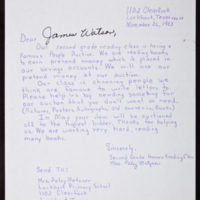 1102 Clearfork
Lockhart, Texas
November 26, 1983
Dear James Watson,
Our second grade reading class is having a
Famous People Auction. We will read books
to earn pretend money which is placed in
our savings accounts. We will use our
pretend money at our auction.
Our class is choosing people we
think are famous to write letters to.
Please help us by sending something for
our auction that you don't want or need.
(Pictures, Posters, Autographs, old souvenirs, Books)
In May your item will be auctioned
off to the highest bidder. Thanks for helping
us. We are working very hard reading
many books.
Sincerely,
Second Grade Honors Reading Class
Mrs. Patsy
Send To:
Mrs. Patsy
Lockhart Primary School
1102 Clearfork
Lockhart, Texas